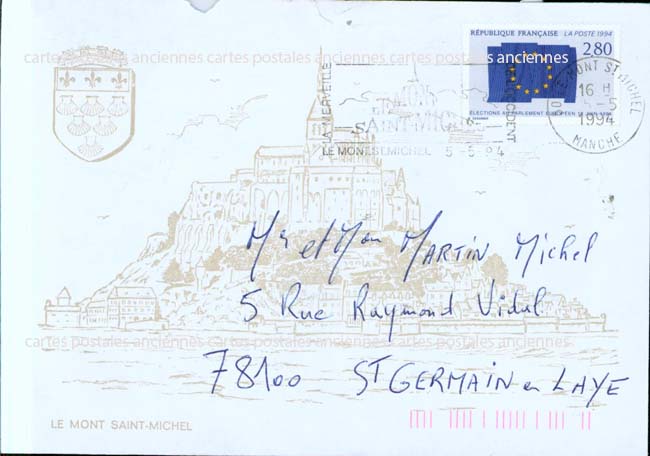 cartes postales anciennes cartes postales anciennes cartes postales anciennes
RÉPUBLIQUE FRANÇAISE LA POSTE 1994
2,80
ÉLECTIONS AU PARLEMENT EUROPÉEN 12 JUIN 1994
LE MONT ST MICHEL
16 H
5-5
1994
MANCHE
LA MERVEILLE
DE L'OCCIDENT
SAINT-MICHEL
LE MONT ST MICHEL 5-5-94
Mr et Mme MARTIN Michel
5 Rue Raymond Vidal
78100 ST GERMAIN en LAYE
cartes postales anciennes cartes postales anciennes cartes postales anciennes
LE MONT SAINT-MICHEL